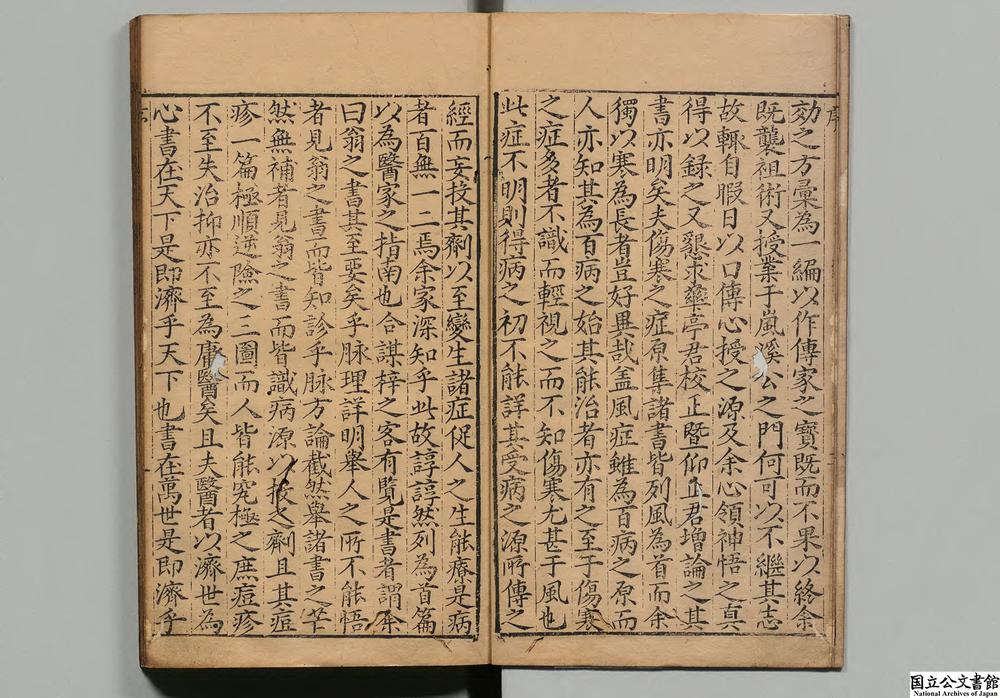 序
効之方彙為一編以作傳家之寶既而不果以終余
既襲祖術又授業于嵐溪公之門何可以不繼其志
故輙自暇日以口傳心授之源及余心領神悟之真
得以録之又懇求臺亭君校正暨仰山君增論之其
書亦明矣夫傷寒之症原隼諸書皆列風為首而余
獨以寒為長者豈好異哉盖風症雖為百病之原而
人亦知其為百病之始其能治者亦有之至于傷寒
之症多者不識而輕視之而不知傷寒尤甚于風也
此症不明則得病之初不能詳其受病之源所傳之
經而妄投其劑以至變生諸症促人之生能療是病
者百無一二焉余家深知乎此故諄諄然列為首篇
以為醫家之指南也合謀梓之客有覧是書者謂余
曰翁之書其至要矣乎脉理詳明舉人之所不能悟
者見翁之書而皆知診乎脉方論截然舉諸書之罕
然無補者見翁之書而皆識病源以投之劑且其痘
疹一篇極順逆險之三圖而人皆能究極之庶痘疹
不至失治抑亦不至為庸醫矣且夫醫者以濟世為
心書在天下是即濟乎天下也書在萬世是即濟乎
国立公文書館
National Archives of Japan